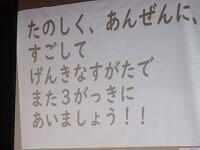 たのしく、あんぜんに、
すごして
げんきなすがたで
また３がっきに
あいましょう！！